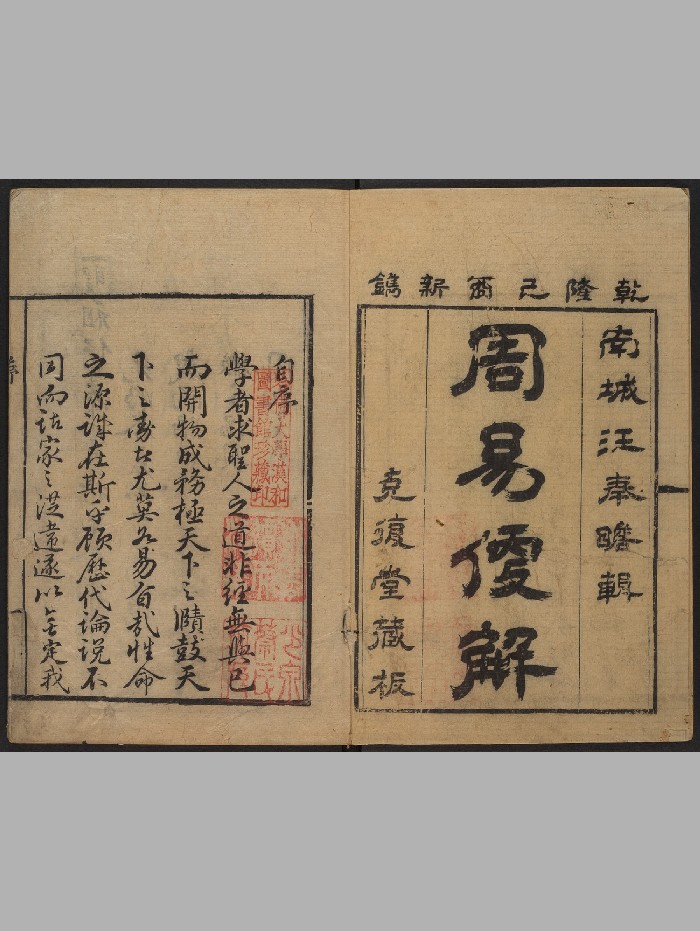 乾隆己酉新鐫
南城汪奉瞻輯
周易便解
克復堂藏板
自序
學者求聖人之道非經無與已
而開物成務極天下之賾鼓天
下之動者尤莫如易旨哉性命
之源誰在斯乎顧歷代論說不
同而諸家之從違遂以無定我
大學漢和
圖書館珍藏印
序